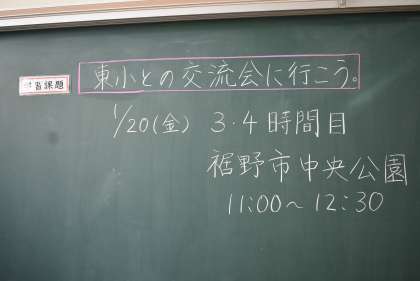 学習課題
東小との交流会に行こう。
1/20(金) 3・4時間目
裾野市中央公園
11:00～12:30